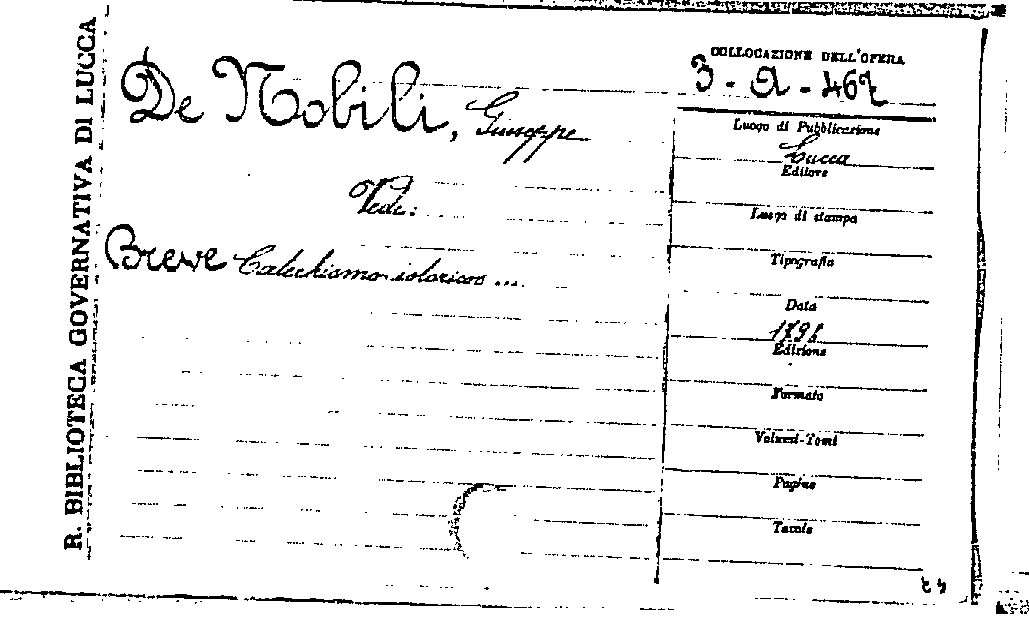 R. BIBLIOTECA GOVERNATIVA DI LUCCA
De Nobili, Giuseppe
Vedi:
Breve Catechismo istorico ...
COLLOCAZIONE DELL'OPERA
3 - a - 467
Luogo di Pubblicazione
Lucca
Editore
Luogo di stampa
Tipografia
Data
Edizione
Formato
Volumi-Tomi
Pagine
Tavole